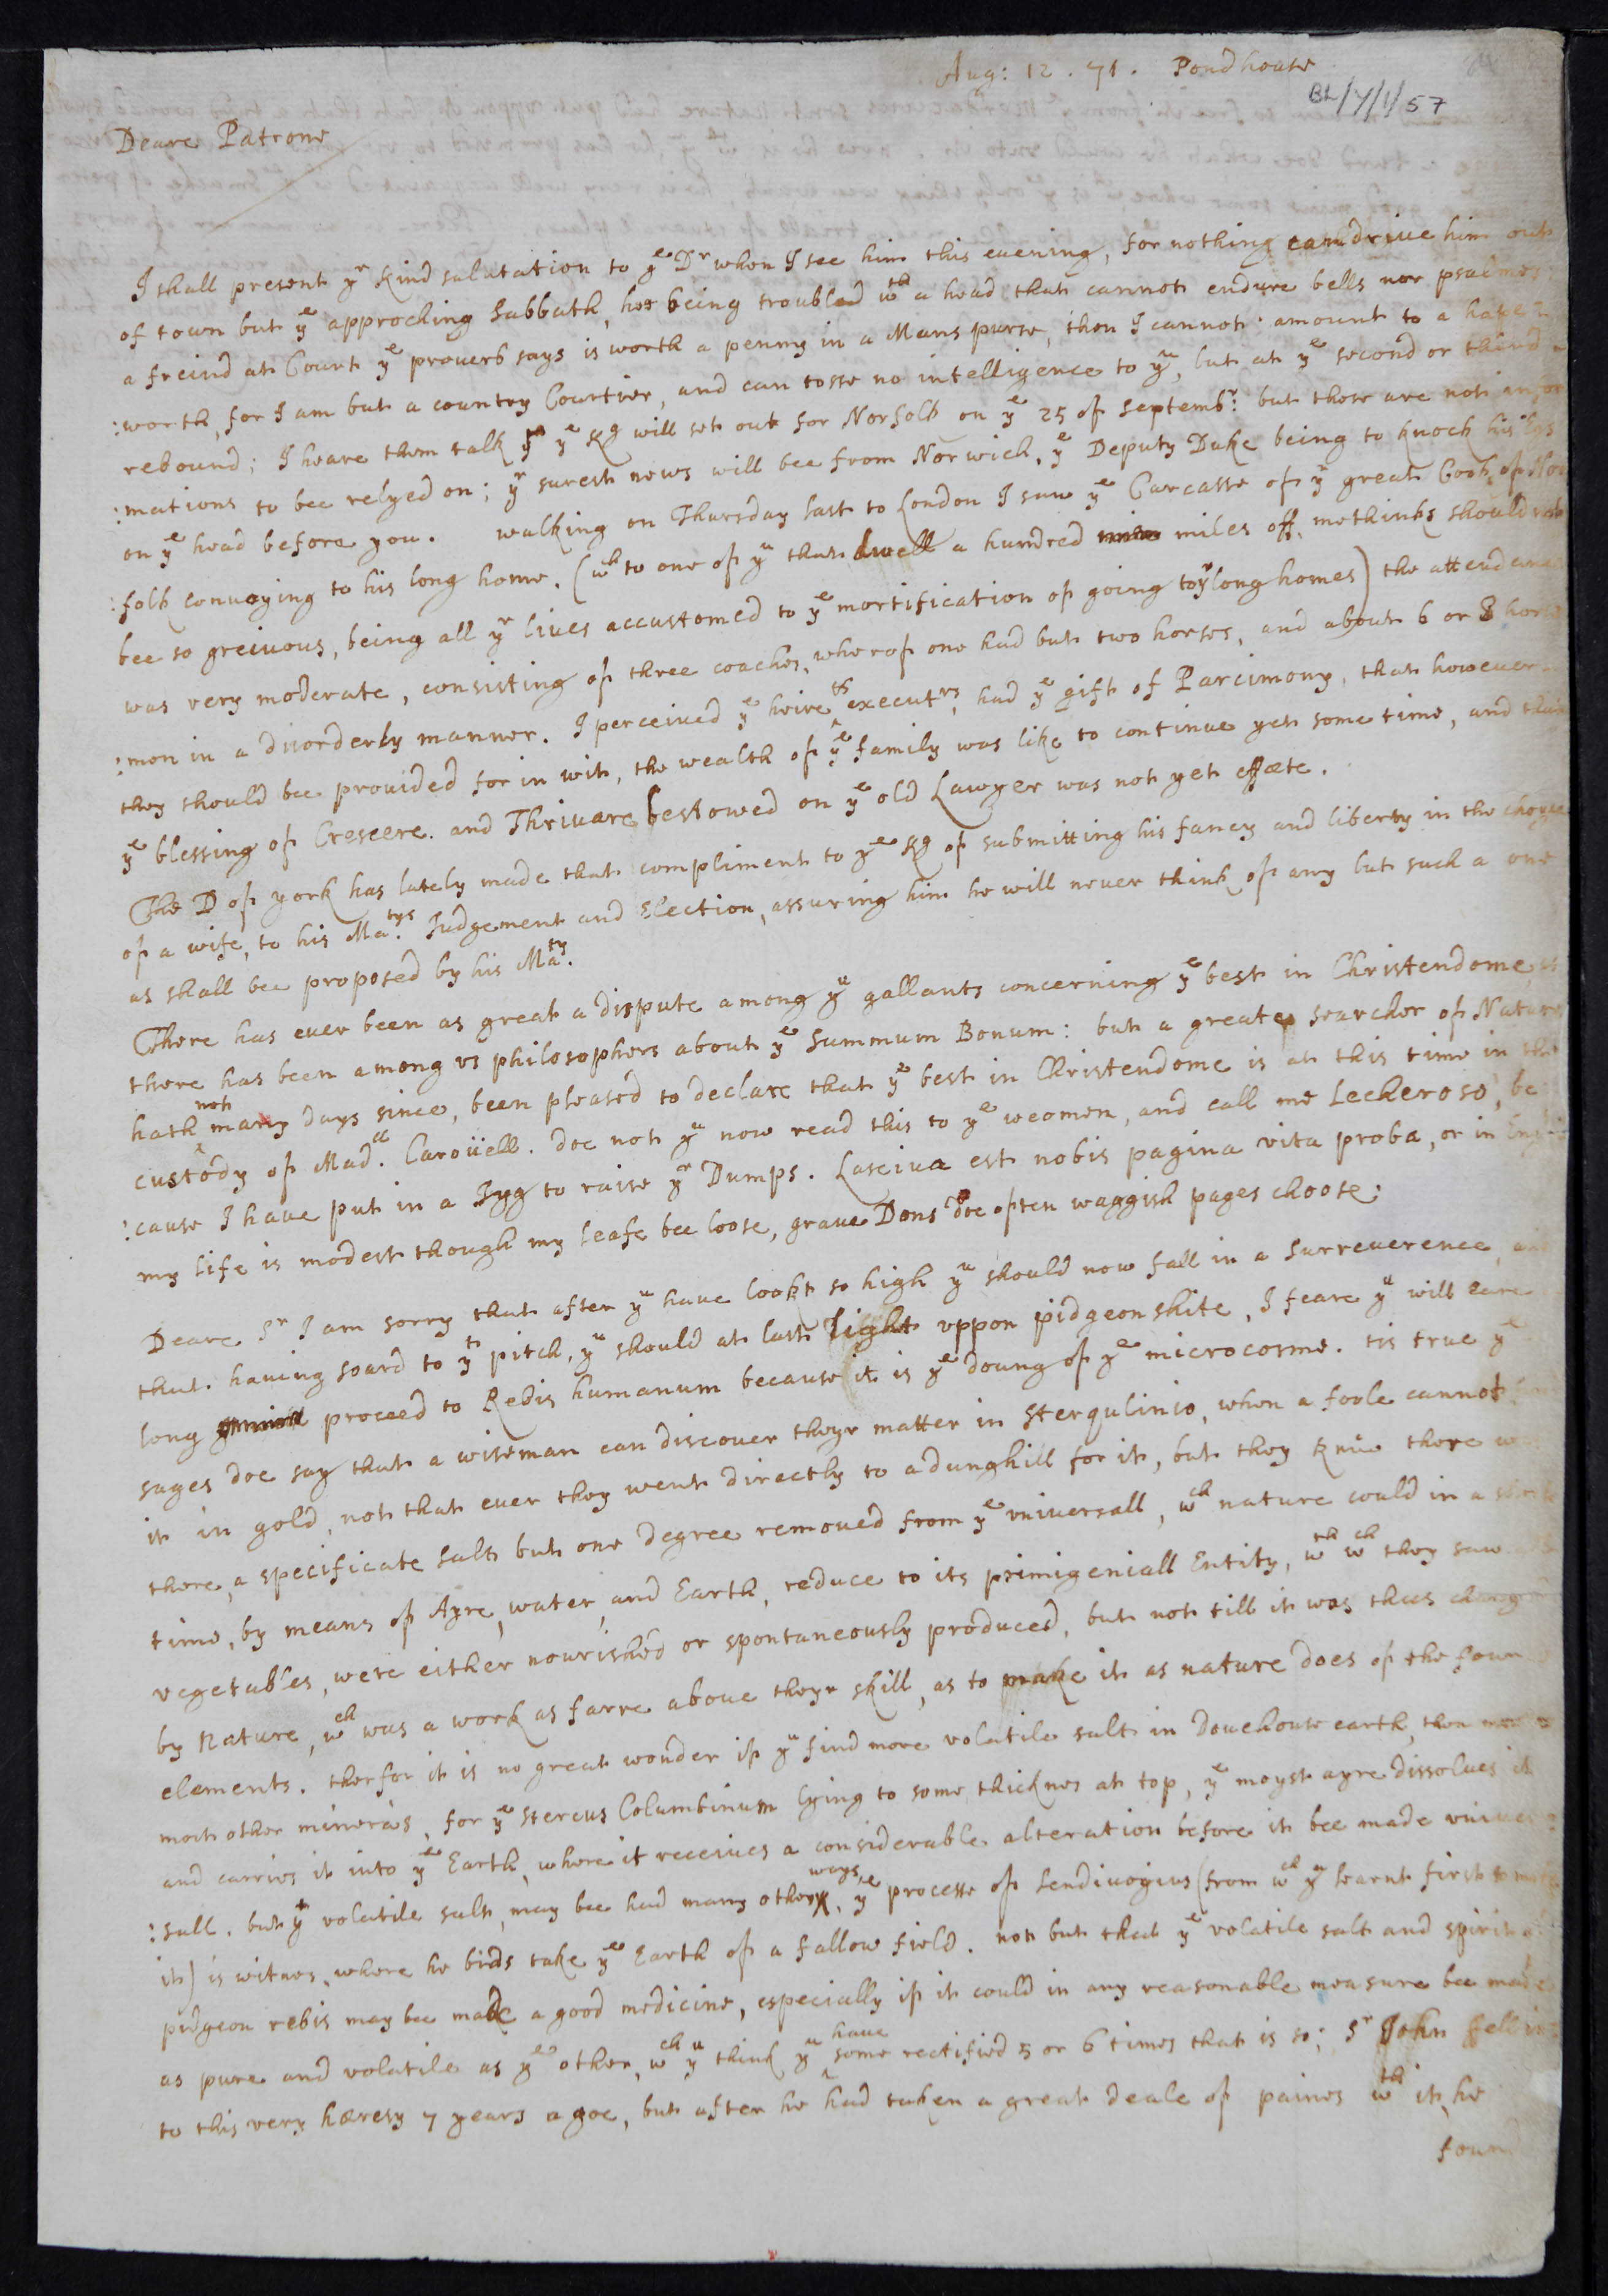 Aug: 12 . 71 . Pondhouse
BL/Y/1/57
Deare Patrone
I shall present yr kind salutation to ye Dr when I see him this euening, for nothing can driue him out
of town but ye approching Sabbath, hee being troubled wth a head that cannot endure bells nor psalmes
a freind at Court ye prouerb says is worth a penny in a Mans purse, then I cannot amount to a
:worth, for I am but a country Courtier, and can tosse no intelligence to yu, but at ye second or third
rebound; I heare them talk yt ye Kg will set out for Norfolk on ye 25 of Septembr: but these are not infor
:mations to bee relyed on; yr surest news will bee from Norwich, ye Deputy Duke being to knock his
on ye head before you. walking on Thursday last to London I saw ye Carcasse of yr great Cook of Nor
:folk conueying to his long home. (wch to one of yu that dwell a hundred miles off, methinks should not
bee so greiuous, being all yr liues accustomed to ye mortification of going to yr long homes) the attendance
was very moderate, consisting of three coaches, wherof one had but two horses, and about 6 or 8 horse
:men in a disorderly manner. I perceiued ye heire & executrs had ye gift of Parcimony, that howeuer
they should bee prouided for in wit, the wealth of ye family was like to continue yet some time, and that
ye blessing of Crescere. and Thriuare bestowed on ye old Lawyer was not yet effæte.
The D of york has lately made that compliment to ye Kg of submitting his fancy and liberty in the choyce
of a wife, to his Matys Judgement and Election, assuring him he will neuer think of any but such a one
as shall bee proposed by his Maty.
There has euer been as great a dispute among ye gallants concerning ye best in Christendome, as
there has been among vs philosophers about ye Summum Bonum: but a greate searcher of Nature
hath not many days since, been pleased to declare that ye best in Christendome is at this time in the
custody of Madll Caroüell. doe not yu now read this to ye weomen, and call me Leckeroso, be
:cause I haue put in a Jyg to raise yr Dumps. Lasciua est nobis pagina vita proba, or in English
my life is modest though my leafe bee loose, graue Dons doe often waggish pages choose.
Deare Sr I am sorry that after yu haue lookt so high yu should now fall in a Surreuerence, and
that hauing soard to yt pitch, yu should at last light vppon pidgeon shite, I feare yu will eare
long proceed to Rebis humanum because it is ye doung of ye microcosme. tis true ye
sages doe say that a wiseman can discouer theyr matter in Sterqulinio, when a foole cannot find
it in gold, not that euer they went directly to a dunghill for it, but they knew there was
there, a specificate salt but one degree remoued from ye vniuersall, wch nature could in a short
time, by means of Ayre, water, and Earth, reduce to its primigeniall Entity, wth wch they saw all
vegetables, were either nourished or spontaneously produced, but not till it was thus changed
by Nature, wch was a work as farre aboue theyr skill, as to make it as nature does of the fowr
elements. therfor it is no great wonder if yu find more volatile salt in Douehouse earth, then
most other mineras, for ye Stercus Columbinum lying to some thicknes at top, ye moyst ayre dissolues it
and carries it into ye Earth, where it receiues a considerable alteration before it bee made vniuer
:sall. but yt volatile salt may bee had many other ways, ye processe of Sendiuogius (from wch yu learnt first to make
it) is witnes, where he bids take ye Earth of a fallow field. not but that ye volatile salt and spirit of
pidgeon rebis may bee made a good medicine, especially if it could in any reasonable measure bee made
as pure and volatile as ye other, wch yu think yu haue some rectified 5 or 6 times that is so; Sr John fell in
to this very hæresy 7 years agoe, but after he had taken a great deale of paines wth it, he
found